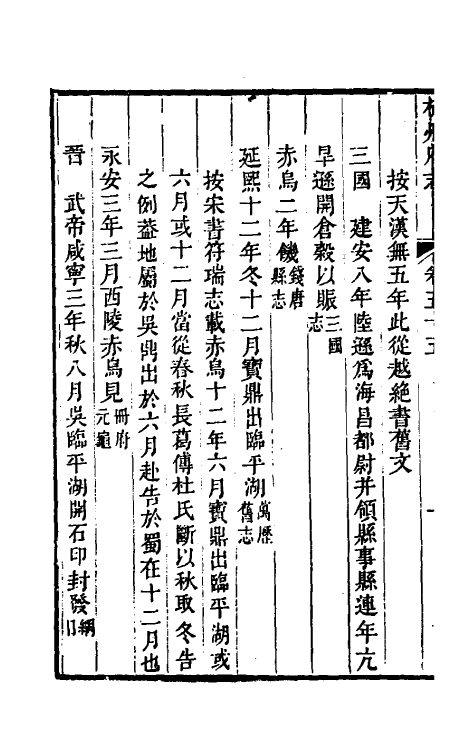 杭州府志 卷五十五
按天漢無五年此從越絶書舊文
三國　建安八年陸遜爲海昌都尉并領縣事縣連年亢
旱遜開倉穀以賑三國志
赤烏二年饑錢唐縣志
延熙十二年冬十二月寶鼎出臨平湖萬歷舊志
按宋書符瑞志載赤烏十二年六月寶鼎出臨平湖或
六月或十二月當從春秋長葛傳杜氏斷以秋取冬告
之例蓋地屬於吳鼎出於六月赴告於蜀在十二月也
永安三年三月西陵赤烏見冊府元龜
晉　武帝咸寧三年秋八月吳臨平湖開石印封發綱目